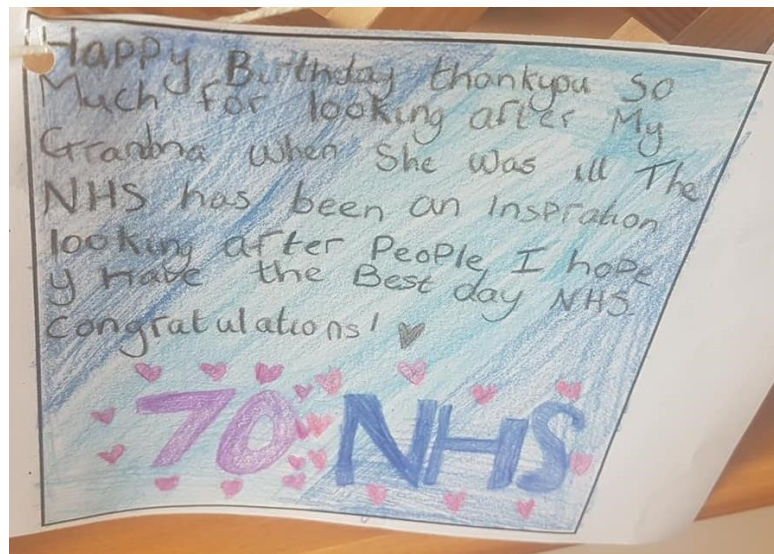 Happy Birthday thankyou so
Much for looking after My
Grandna when She was ill The
NHS has been an Inspration
looking after People, I hope
y have the Best day NHS
congratulations!
70 NHS